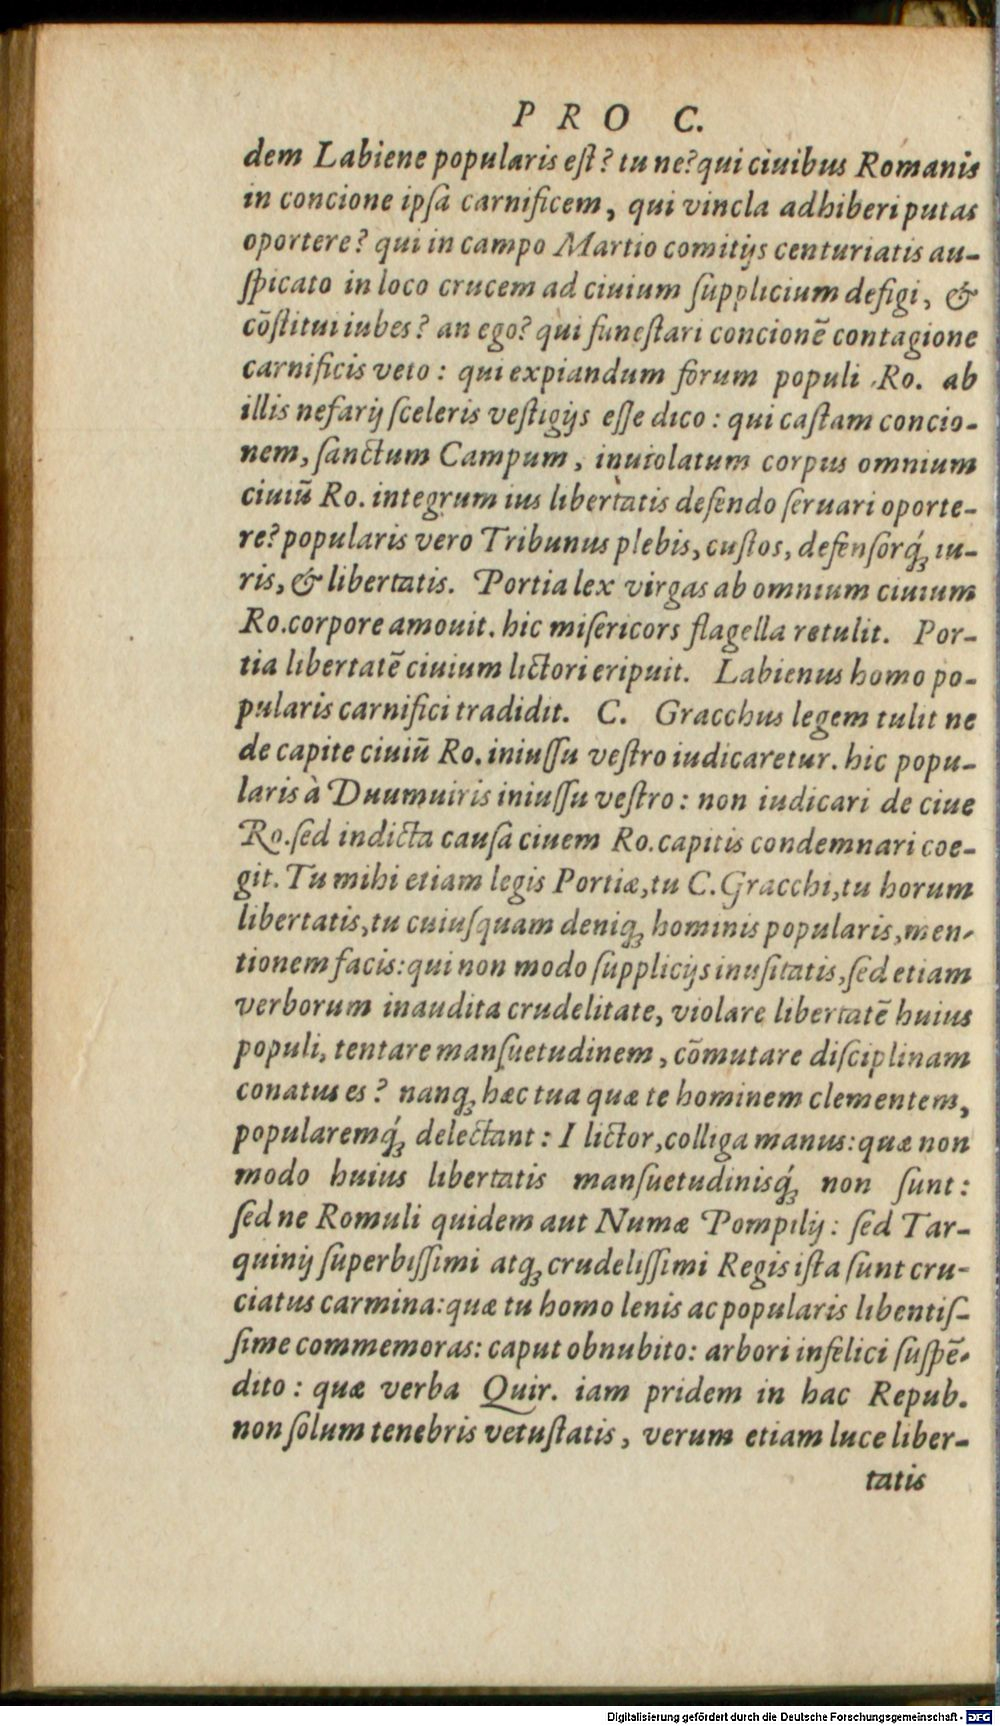 PRO C.
dem Labiene popularis eſt? tu ne? qui ciuibus Romanis
in concione ipſa carnificem, qui vincla adhiberi putas
oportere? qui in campo Martio comitijs centuriatis au-
ſpicato in loco crucem ad ciuium ſupplicium defigi, &
cõſtitui iubes? an ego? qui funeſtari concionẽ contagione
carnificis veto: qui expiandum forum populi Ro. ab
illis nefarij ſceleris veſtigijs eſſe dico: qui caſtam concio-
nem, ſanctum Campum, inuiolatum corpus omnium
ciuiũ Ro. integrum ius libertatis defendo ſeruari oporte-
re? popularis vero Tribunus plebis, cuſtos, defenſorq́ꝫ iu-
ris, & libertatis. Portia lex virgas ab omnium ciuium
Ro. corpore amouit. hic miſericors flagella retulit. Por-
tia libertatẽ ciuium lictori eripuit. Labienus homo po-
pularis carnifici tradidit. C. Gracchus legem tulit ne
de capite ciuiũ Ro. iniuſſu veſtro iudicaretur. hic popu-
laris à Duumuiris iniuſſu veſtro: non iudicari de ciue
Ro. ſed indicta cauſa ciuem Ro. capitis condemnari coe-
git. Tu mihi etiam legis Portiæ, tu C. Gracchi, tu horum
libertatis, tu cuiuſquam deniqꝫ hominis popularis, men-
tionem facis: qui non modo ſupplicijs inuſitatis, ſed etiam
verborum inaudita crudelitate, violare libertatẽ huius
populi, tentare manſuetudinem, cõmutare diſciplinam
conatus es? nanqꝫ hæc tua quæ te hominem clementem,
popularemq́ꝫ delectant: I lictor, colliga manus: quæ non
modo huius libertatis manſuetudinisq́ꝫ non ſunt:
ſed ne Romuli quidem aut Numæ Pompilij: ſed Tar-
quinij ſuperbiſſimi atqꝫ crudeliſſimi Regis iſta ſunt cru-
ciatus carmina: quæ tu homo lenis ac popularis libentiſ-
ſime commemoras: caput obnubito: arbori infelici ſuſpẽ-
dito: quæ verba Quir. iam pridem in hac Repub.
non ſolum tenebris vetuſtatis, verum etiam luce liber-
tatis
Digitalisierung gefördert durch die Deutsche Forschungsgemeinschaft - DFG